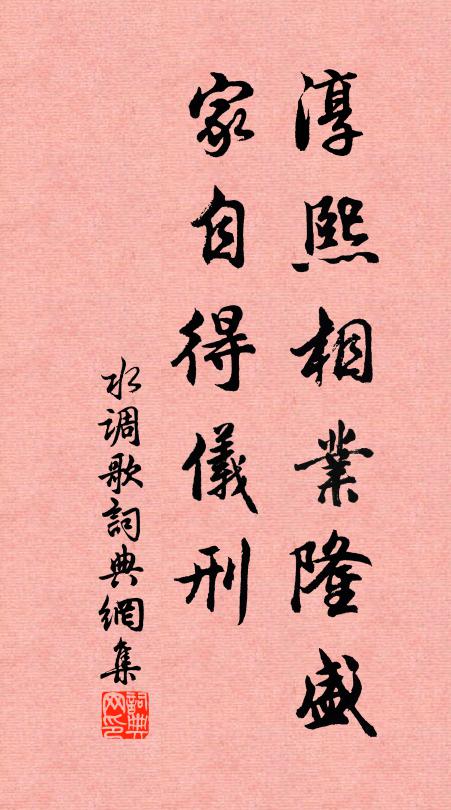 淳熙相業隆盛
家自得儀刑
水调歌詞典網集
詞典网印